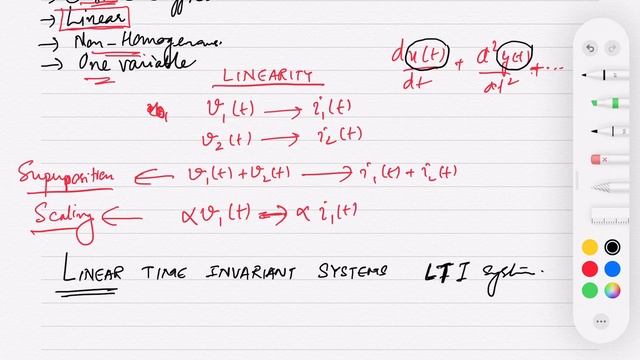 → Linear
→ Non-Homogenous
→ One variable
dx(t)/dt + d²y(t)/dt² + ...
LINEARITY
v₁(t) → i₁(t)
v₂(t) → i₂(t)
Superposition ← v₁(t) + v₂(t) → i₁(t) + i₂(t)
Scaling ← αv₁(t) → αi₁(t)
LINEAR TIME INVARIANT SYSTEMS LTI system.